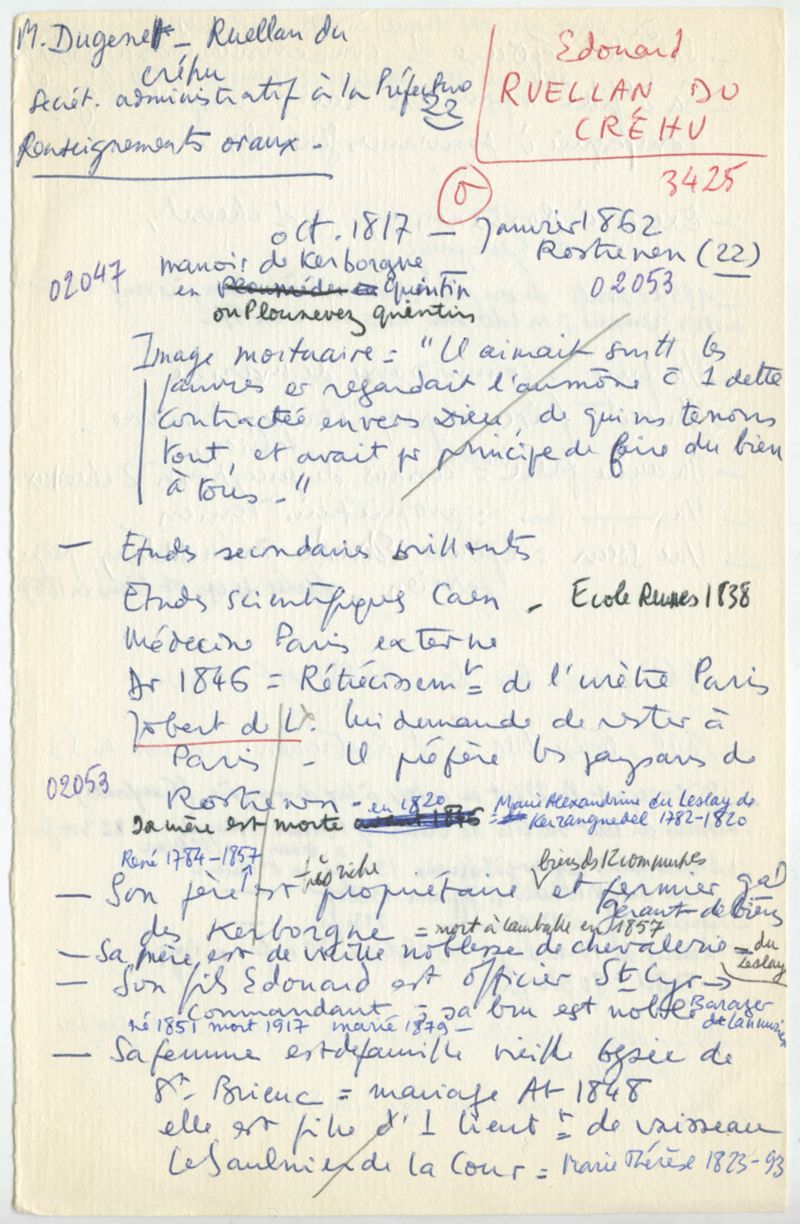 M. Dugenet - Ruellan du
créhu
Secrét. administratif à la Préfecture
22
Renseignements oraux -
Edouard
RUELLAN DU
CRÉHU
3425
oct. 1817 - Janvier 1862
Rostrenen (22)
02047
manoir de Kerborgne
02053
en Quintin
ou Plounevez quintin
Image mortuaire = "Il aimait surtt les
pauvres et regardait l'aumône c 1 dette
contractée envers Dieu, de qui ns tenons
tout, et avait pr principe de faire du bien
à tous. "
- Etudes secondaires brillantes
Etudes scientifiques Caen - Ecole Rennes 1838
Médecine Paris externe
Dr 1846 = Rétrécissemt de l'urètre Paris
Jobert de L. lui demande de rester à
Paris - Il préfère les paysans de
02053
Rostrenen -
en 1820
Sa mère est morte = Marie Alexandrine du Leslay de
Kerranguedel 1782-1820
René 1784-1857
très riche
biens ds 12 communes
- Son père est propriétaire et fermier gal
gérant de biens
des Kerborgne = mort à Lamballe en 1857
- Sa mère est de vieille noblesse de chevalerie = du
Leslay
- Son fils Edouard est officier St Cyr →
Commandant = sa bru est noble Barazer
de Lannurien
né 1851 mort 1917 marié 1879 -
- Sa femme est de famille vieille bgsie de
St Brieuc = mariage At 1848
elle est fille d'1 lieutt de vaisseau
Le Saulnier de la Cour = Marie Thérèse 1823-93